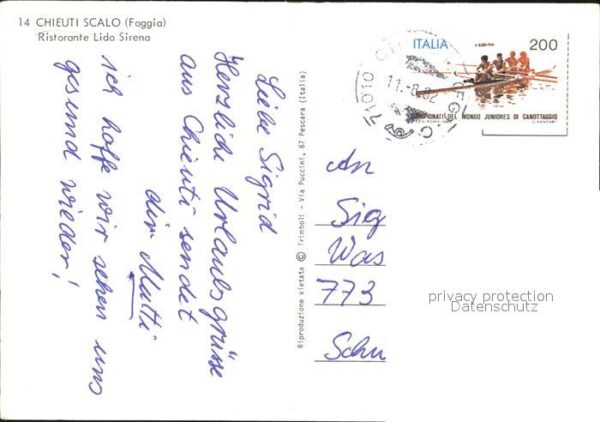 14 CHIEUTI SCALO (Foggia)
Ristorante Lido Sirena
Liebe Sigrid
Herzliche Urlaubsgrüsse
aus Chieuti sendet
dir Mutti
ich hoffe wir sehen uns
gesund wieder!
Riproduzione vietata © Trimboli - Via Puccini, 67 Pescara (Italia)
ITALIA 200
CAMPIONATI DEL MONDO JUNIORES DI CANOTTAGGIO
71010
11.-8.82
An
Sig
Was
773
Schu
privacy protection
Datenschutz